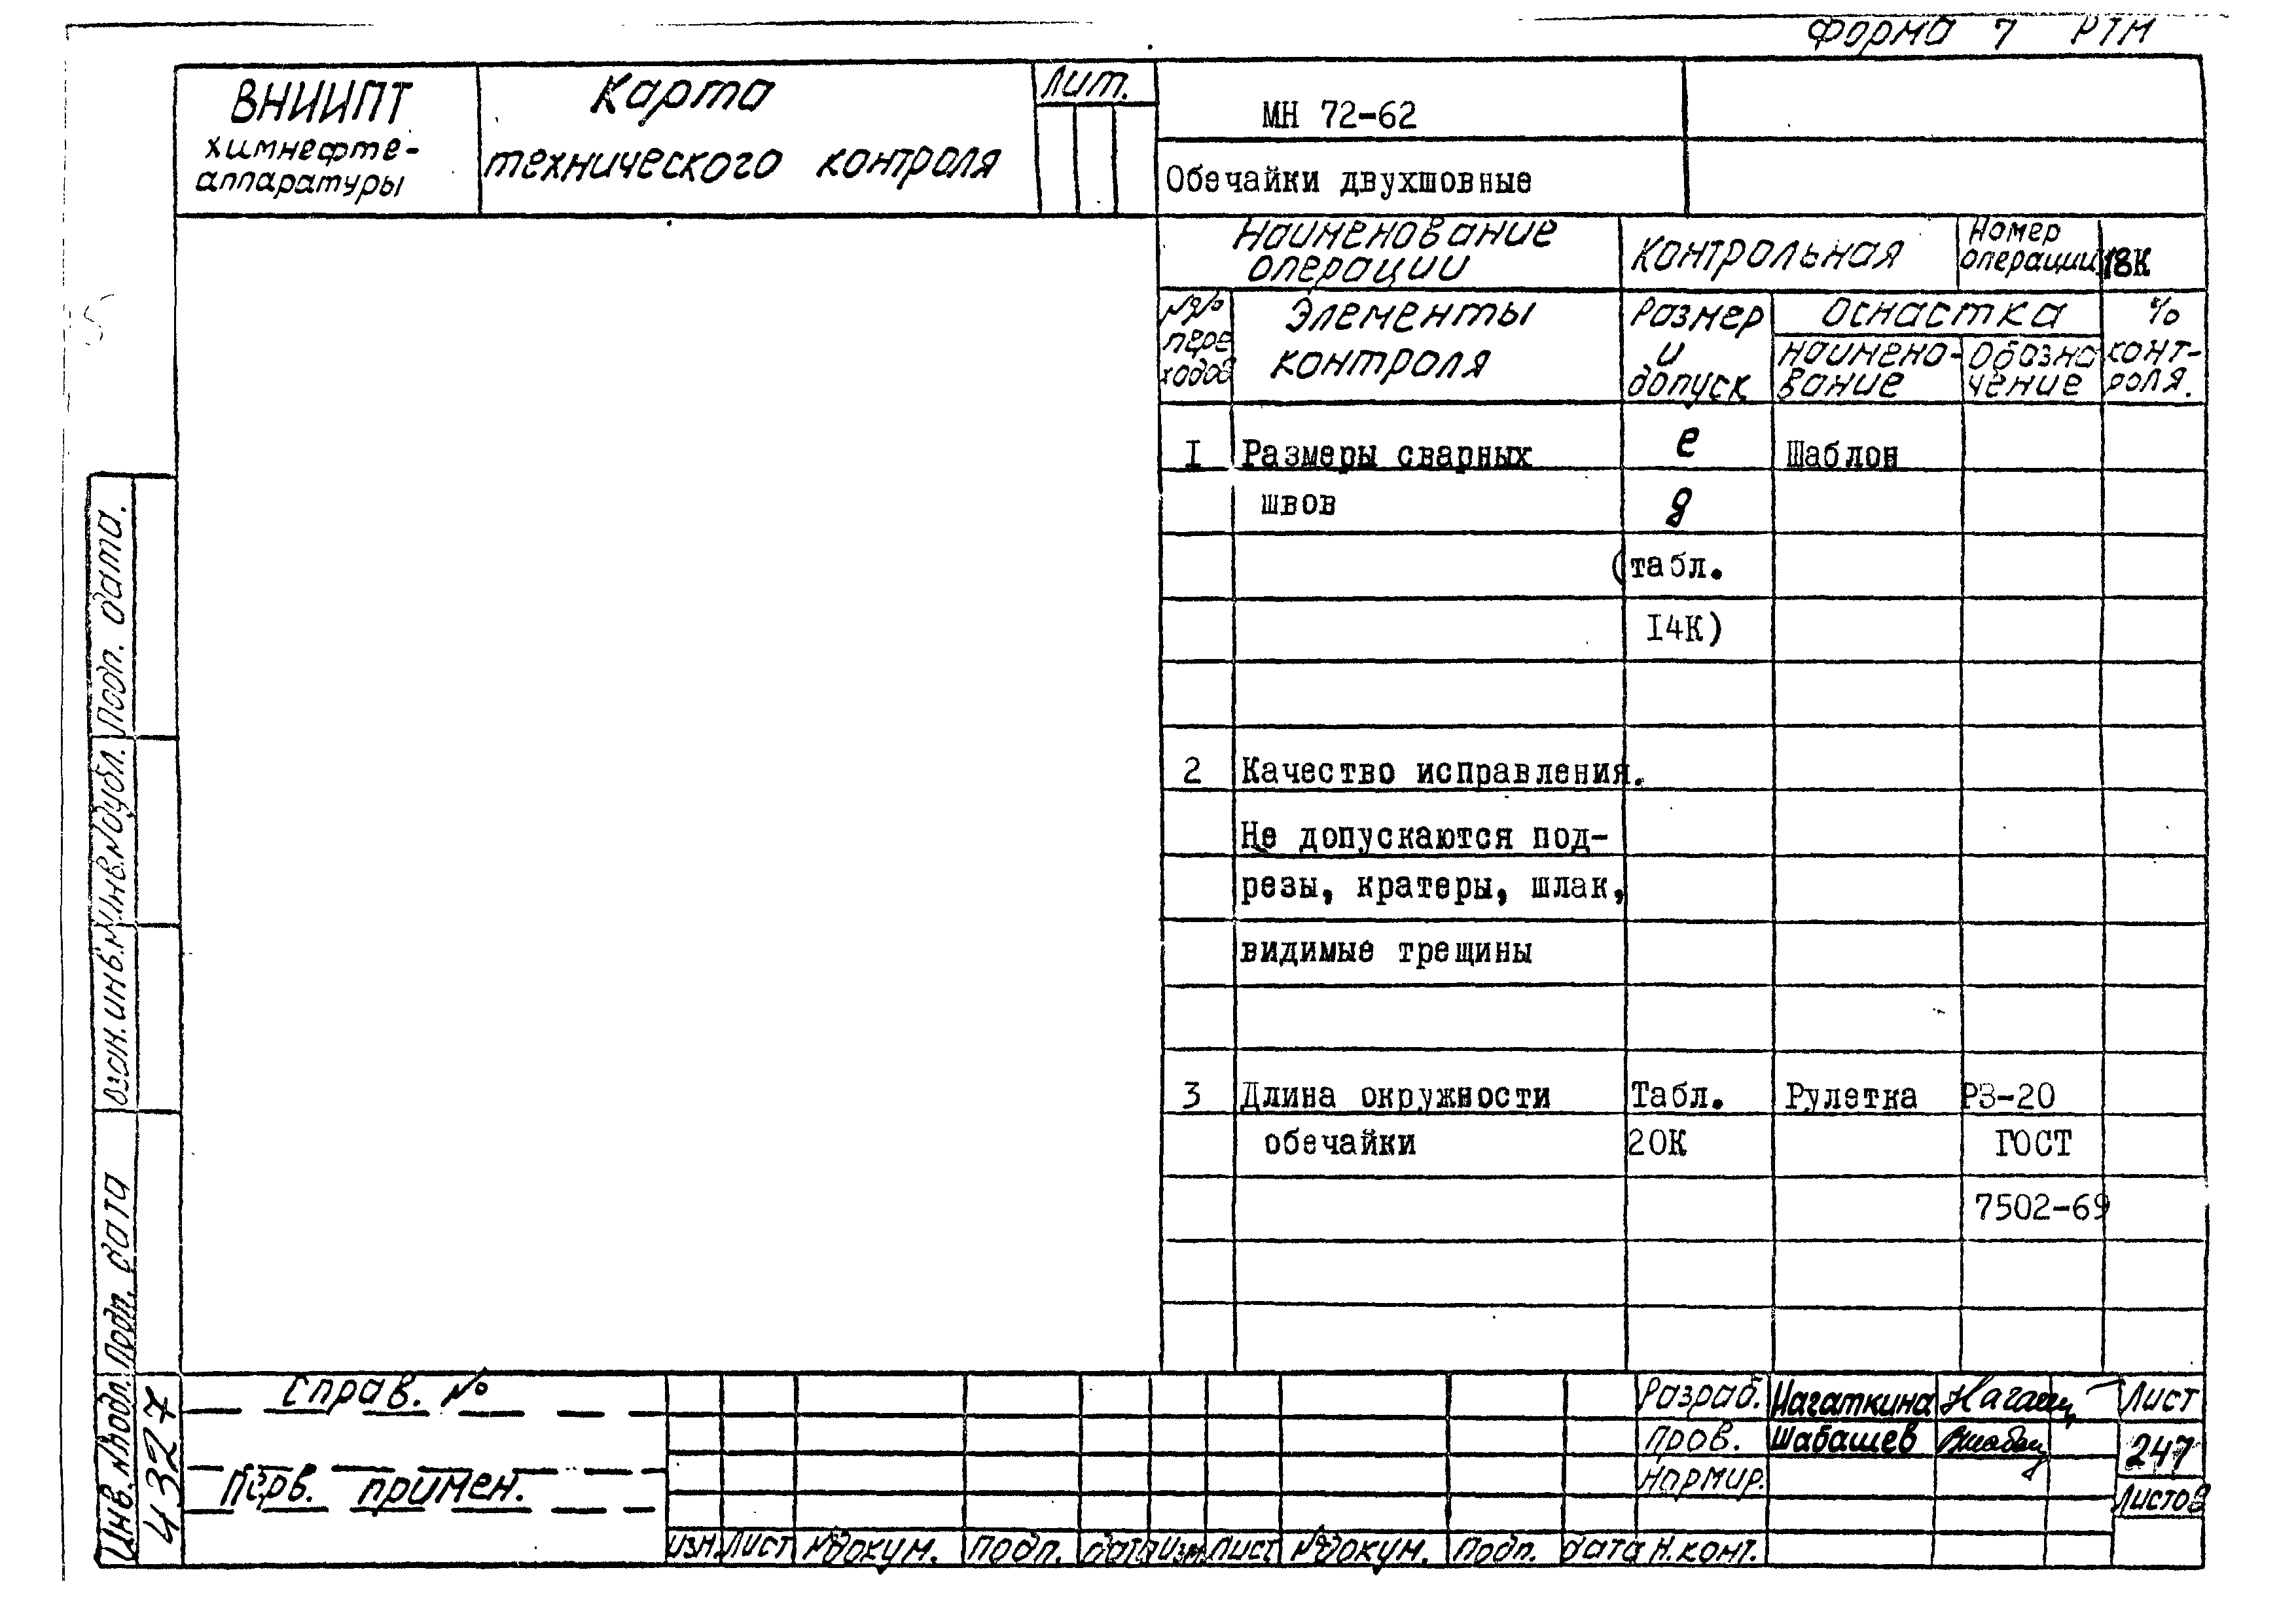 Форма 7 РТМ
ВНИИПТ
химнефте-
аппаратуры
Карта
технического контроля
Лит.
МН 72-62
Обечайки двухшовные
Наименование
операции
Контрольная
Номер
операции
18К
№№
пере
ходов
Элементы
контроля
Размер
и
допуск
Оснастка
наимено-
вание
Обозна
чение
%
конт-
роля.
I Размеры сварных е Шаблон
швов
(табл.
I4К)
2 Качество исправления.
Не допускаются под-
резы, кратеры, шлак,
видимые трещины
3 Длина окружности Табл. Рулетка РЗ-20
обечайки 20К ГОСТ
7502-69
Подп. дата.
Инв.№дубл.
Взам. инв.№
Подп. дата
Инв. №подл.
4327
Справ. №
Перв. примен.
изм. Лист №докум. Подп. дата изм. Лист №докум. Подп. дата
Разраб. Нагаткина
Пров. Шабашев
Нормир.
Н.конт.
Лист
247
Листов